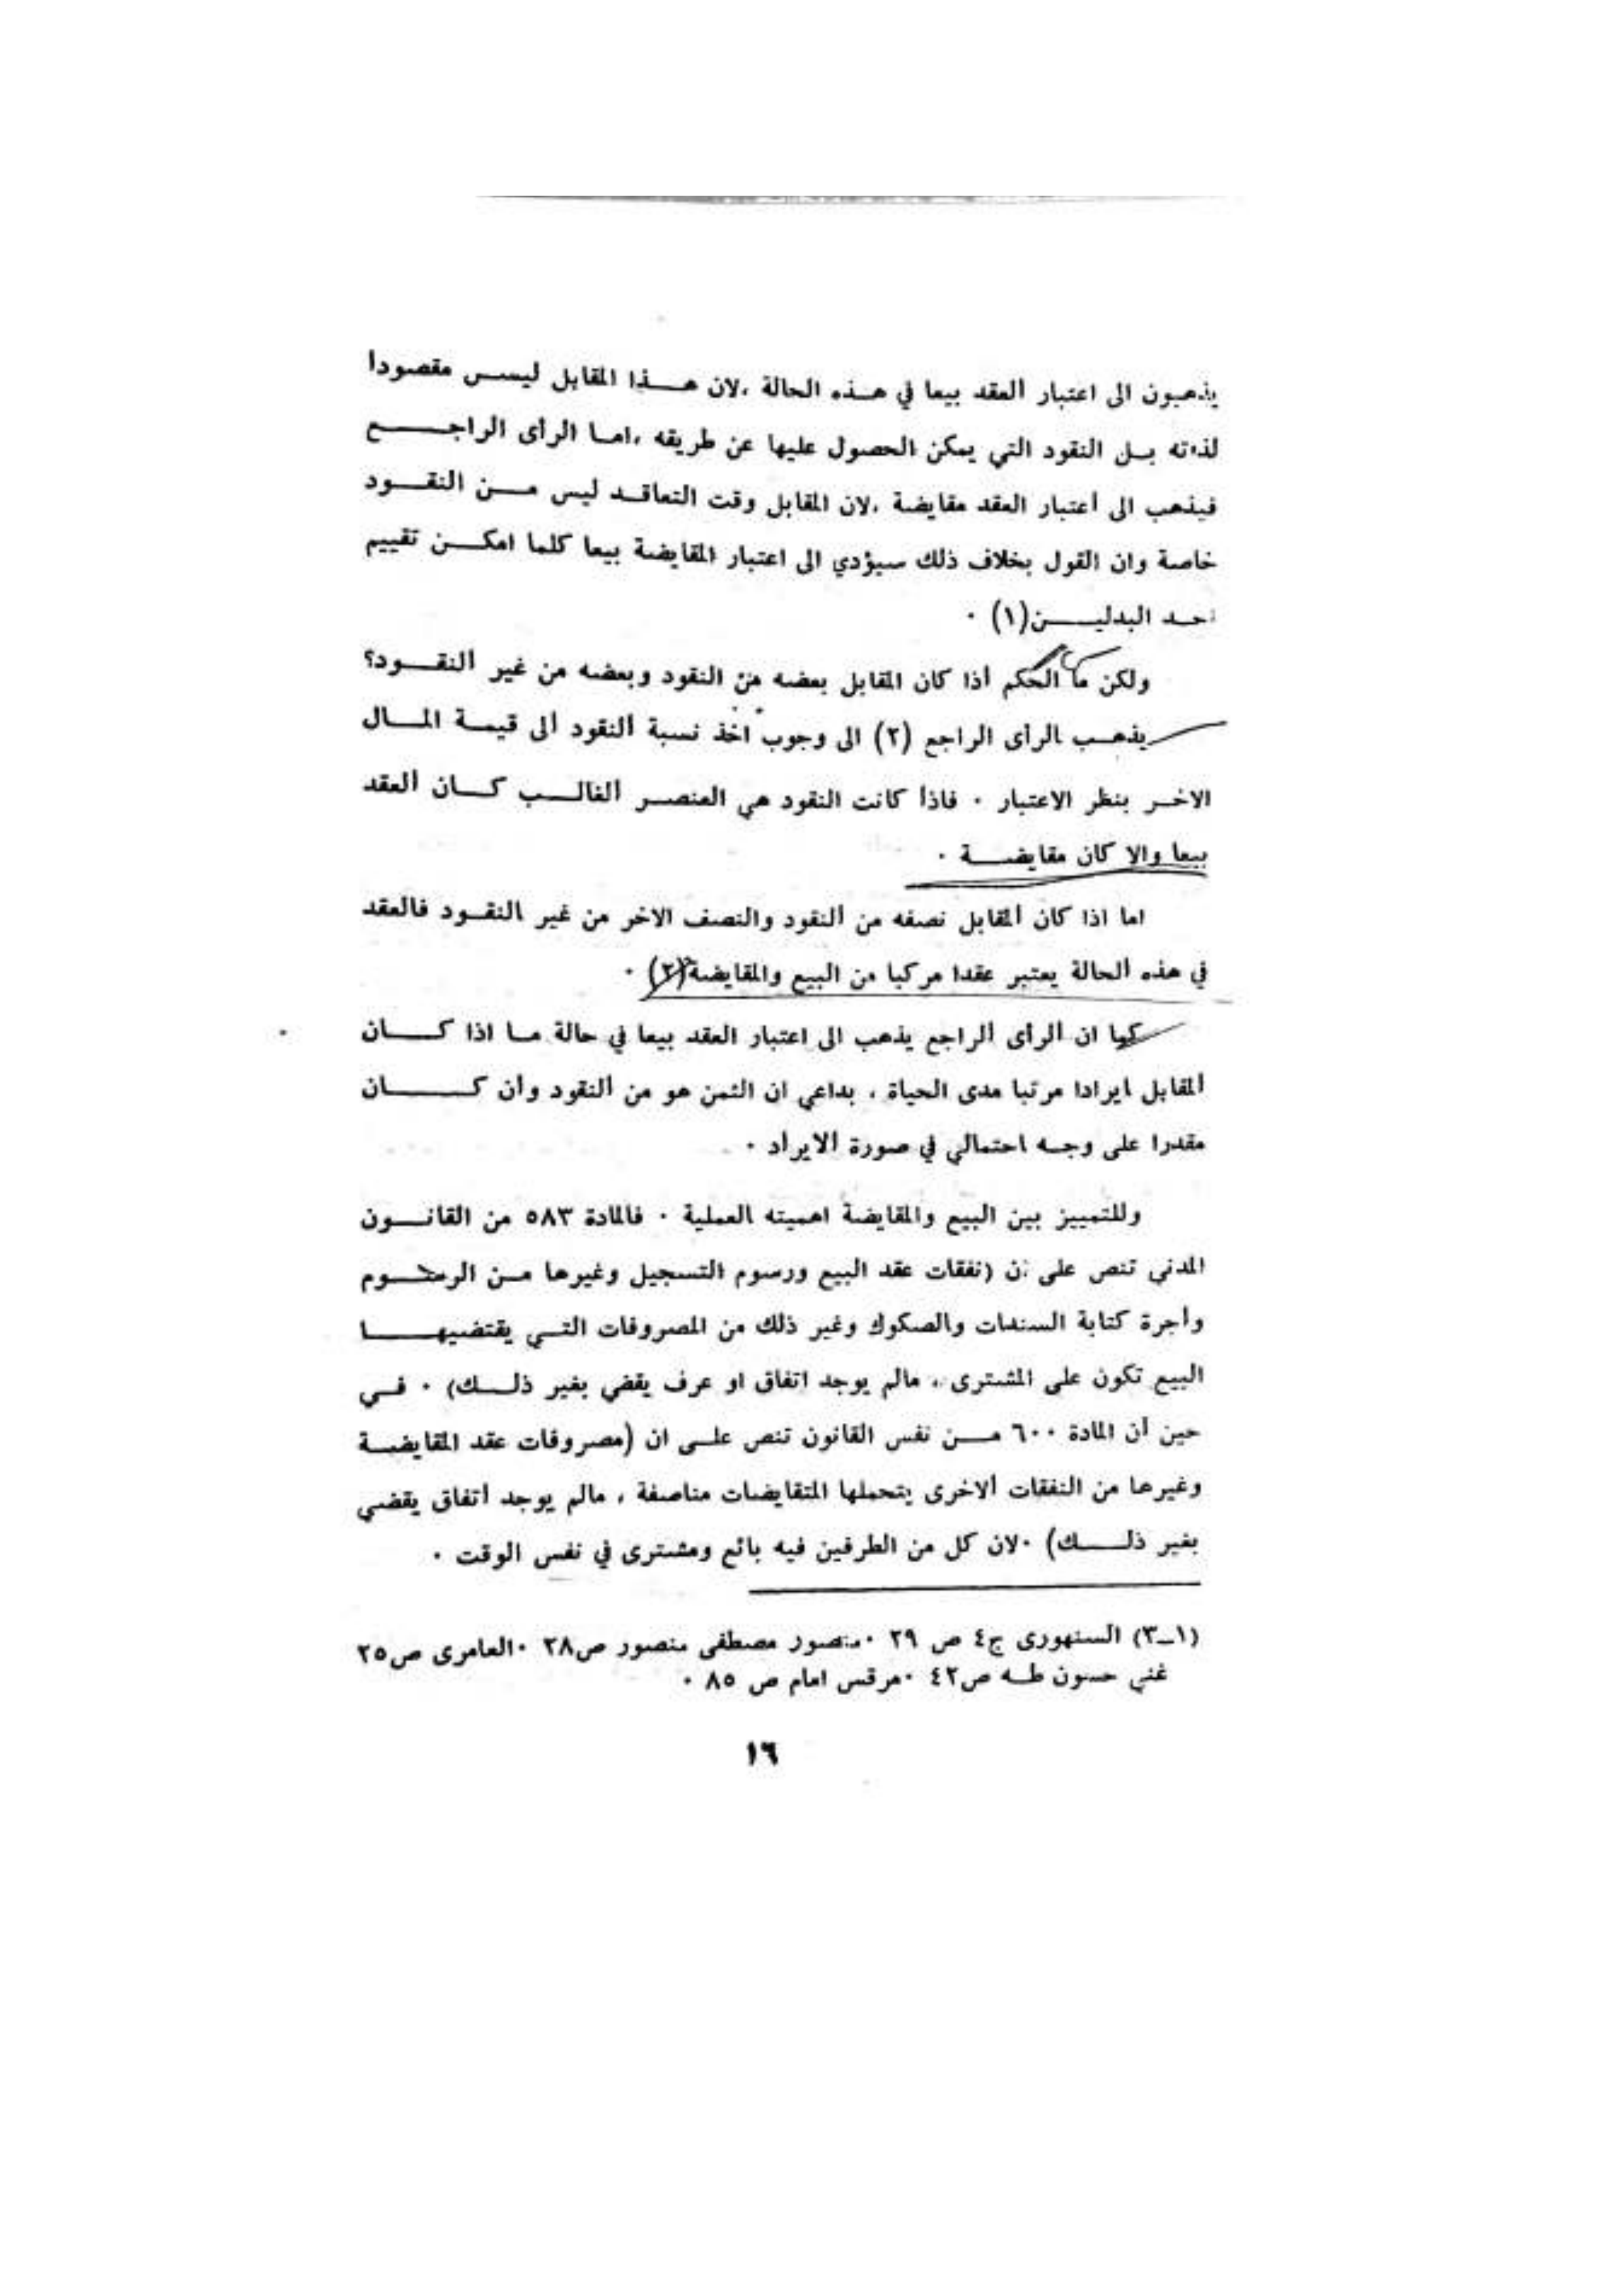 يذهبون الى اعتبار العقد بيعا في هذه الحالة ،لان هذا المقابل ليس مقصودا
لذاته بل النقود التي يمكن الحصول عليها عن طريقه ،اما الرأى الراجح
فيذهب الى أعتبار العقد مقايضة ،لان المقابل وقت التعاقد ليس من النقود
خاصة وان القول بخلاف ذلك سيؤدي الى اعتبار المقايضة بيعا كلما امكن تقييم
احد البدلين(١) ٠
ولكن ما الحكم أذا كان المقابل بعضه من النقود وبعضه من غير النقود؟
يذهب الرأى الراجح (٢) الى وجوب اخذ نسبة النقود الى قيمة المال
الاخر بنظر الاعتبار ٠ فاذا كانت النقود هي العنصر الغالب كان العقد
بيعا والا كان مقايضة ٠
اما اذا كان المقابل نصفه من النقود والنصف الاخر من غير النقود فالعقد
في هذه الحالة يعتبر عقدا مركبا من البيع والمقايضة(٣) ٠
كما ان الرأى الراجح يذهب الى اعتبار العقد بيعا في حالة ما اذا كان
المقابل ايرادا مرتبا مدى الحياة ، بداعي ان الثمن هو من النقود وأن كان
مقدرا على وجه احتمالي في صورة الايراد ٠
وللتمييز بين البيع والمقايضة اهميته العملية ٠ فالمادة ٥٨٣ من القانون
المدني تنص على أن (نفقات عقد البيع ورسوم التسجيل وغيرها من الرسوم
وأجرة كتابة السندات والصكوك وغير ذلك من المصروفات التي يقتضيها
البيع تكون على المشترى ، مالم يوجد اتفاق او عرف يقضي بغير ذلك) ٠ في
حين أن المادة ٦٠٠ من نفس القانون تنص على ان (مصروفات عقد المقايضة
وغيرها من النفقات ألاخرى يتحملها المتقايضات مناصفة ، مالم يوجد أتفاق يقضي
بغير ذلك) ٠لان كل من الطرفين فيه بائع ومشترى في نفس الوقت ٠
(١_٣) السنهورى ج٤ ص ٢٩ ٠منصور مصطفى منصور ص٢٨ ٠العامرى ص٢٥
غني حسون طه ص٤٢ ٠مرقس امام ص ٨٥ ٠
١٦